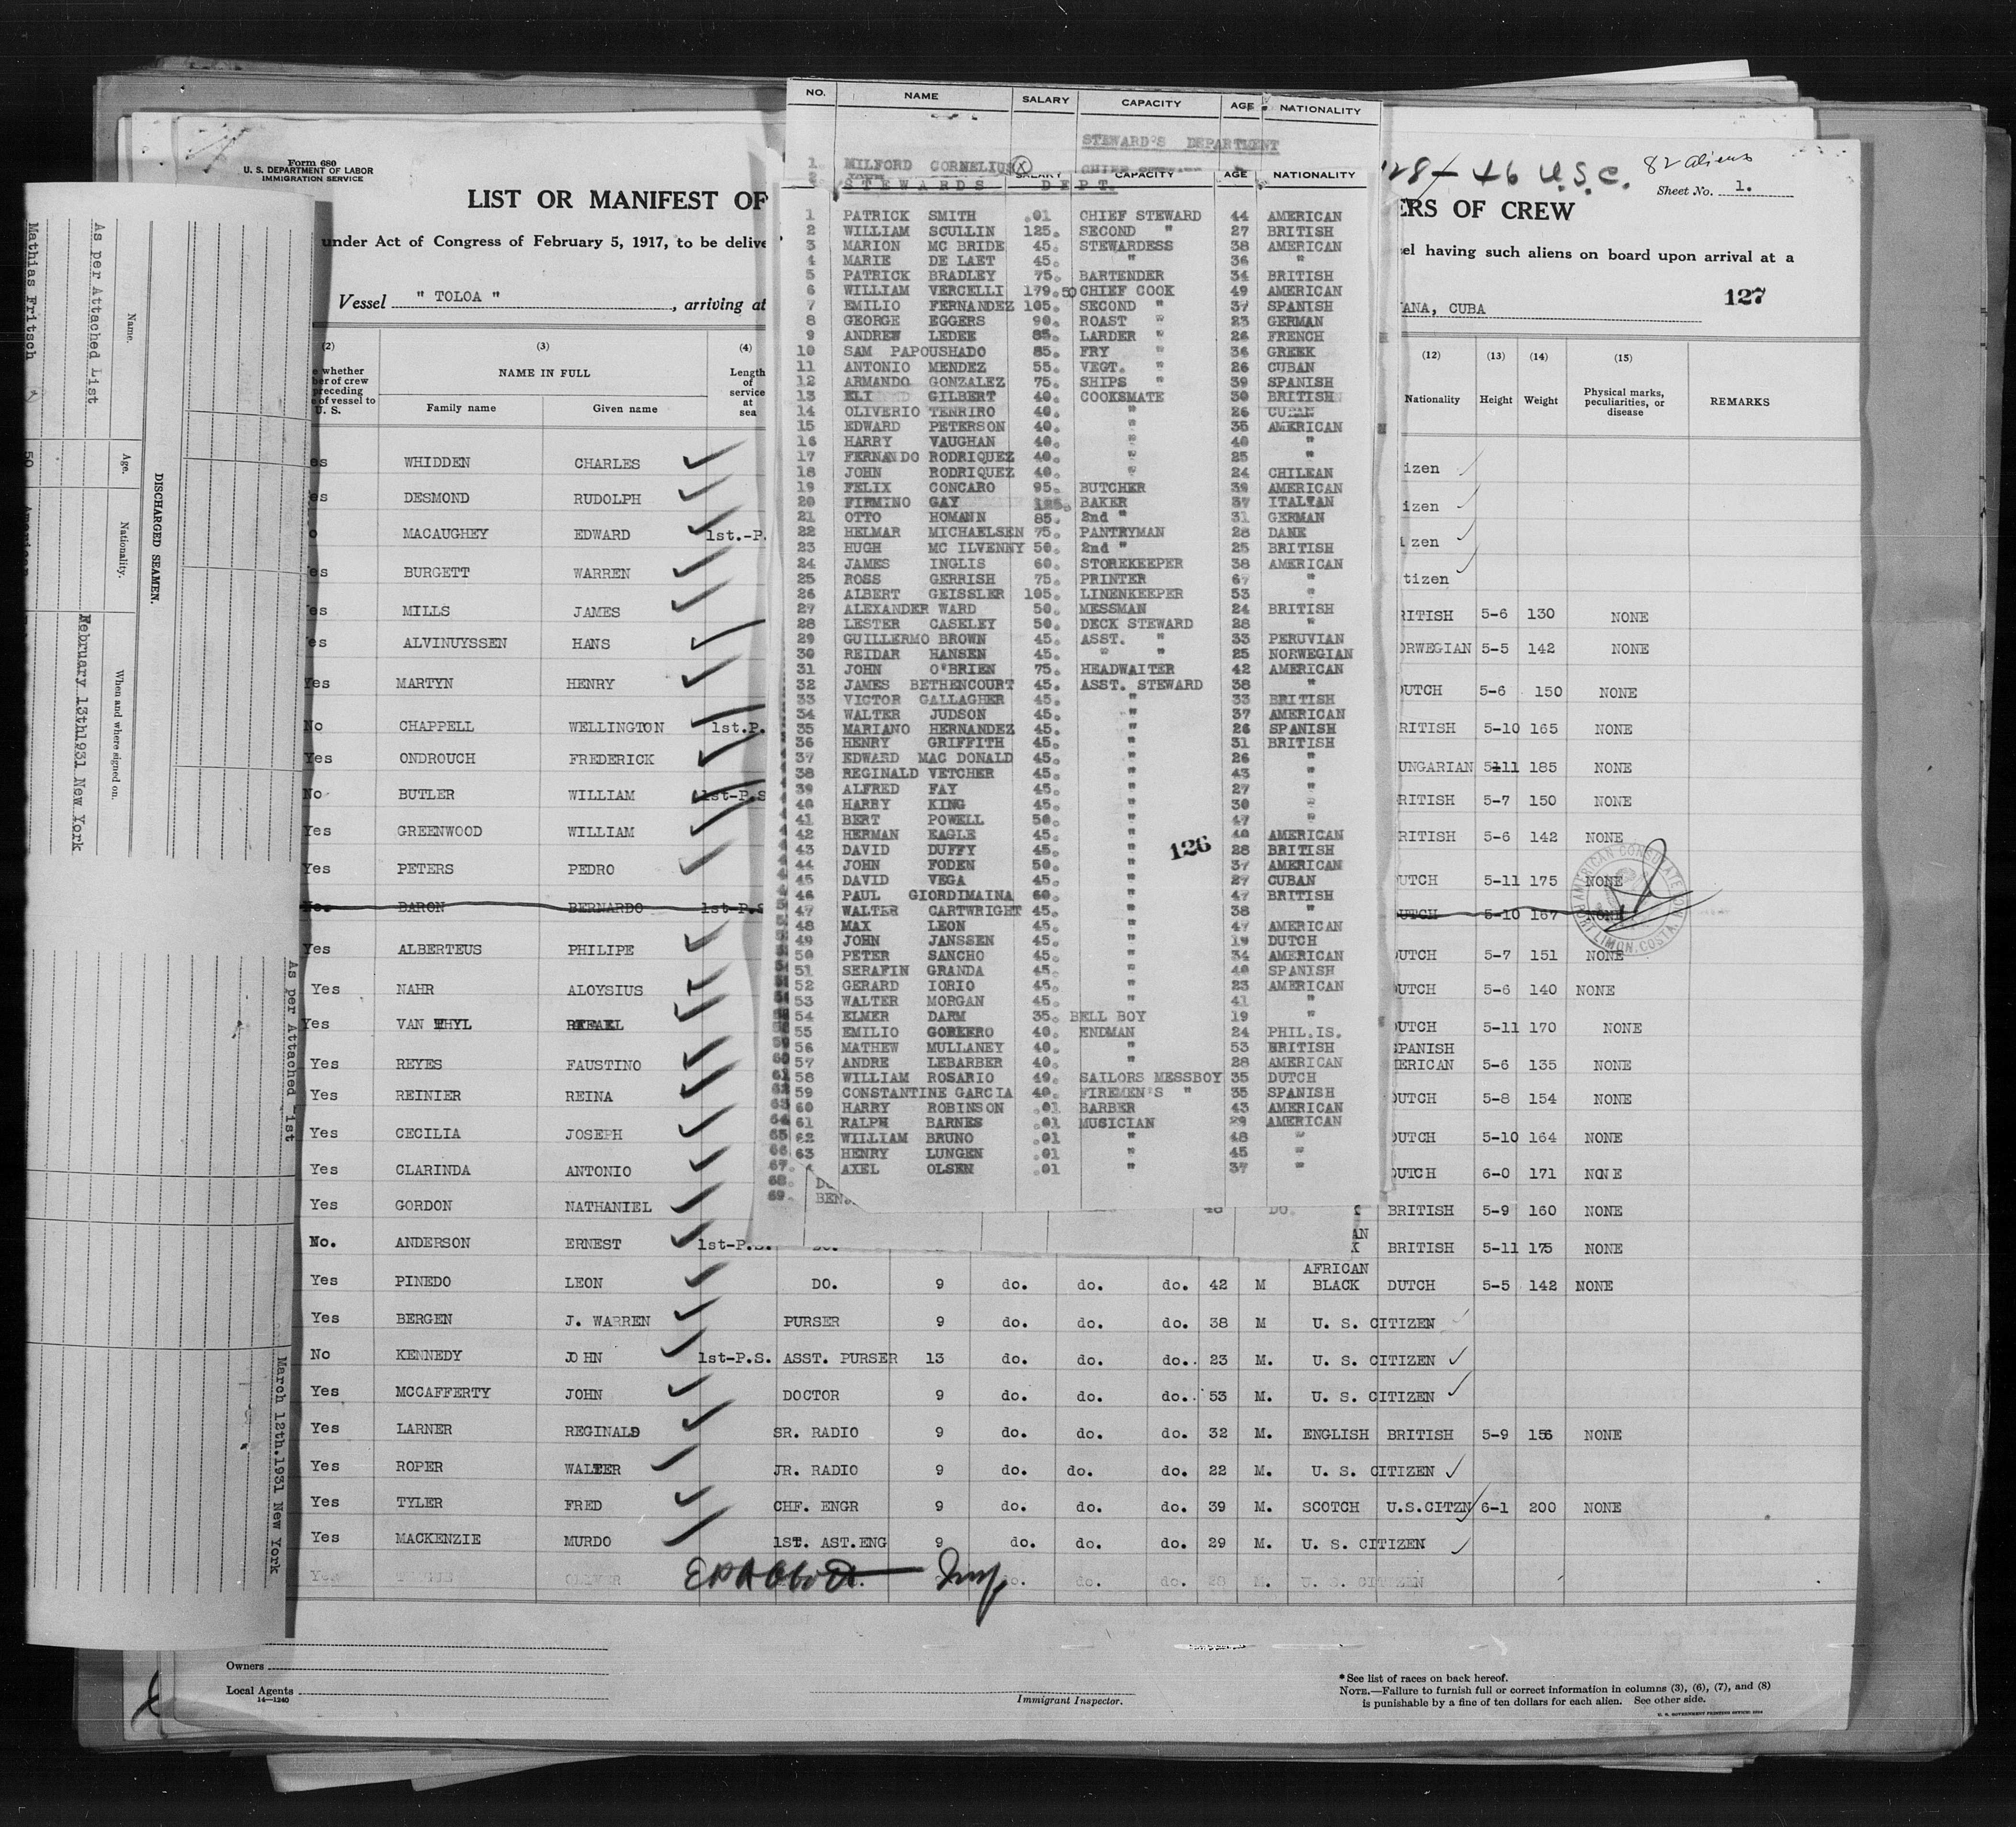 Form 680
U. S. DEPARTMENT OF LABOR
IMMIGRATION SERVICE
LIST OR MANIFEST OF
under Act of Congress of February 5, 1917, to be delive
Vessel " TOLOA " , arriving at
(2) (3) (4)
e whether
ber of crew
preceding
e of vessel to
U. S.
NAME IN FULL
Family name Given name
Length
of
service
at
sea
es WHIDDEN CHARLES
es DESMOND RUDOLPH
o MACAUGHEY EDWARD 1st.-P.
es BURGETT WARREN
es MILLS JAMES
es ALVINUYSSEN HANS
Yes MARTYN HENRY
No CHAPPELL WELLINGTON 1st.P.
Yes ONDROUCH FREDERICK
No BUTLER WILLIAM 1st-P.S
Yes GREENWOOD WILLIAM
Yes PETERS PEDRO
BARON BERNARDO 1st-P.S
Yes ALBERTEUS PHILIPE
Yes NAHR ALOYSIUS
Yes VAN
Yes REYES FAUSTINO
Yes REINIER REINA
Yes CECILIA JOSEPH
Yes CLARINDA ANTONIO
Yes GORDON NATHANIEL
No. ANDERSON ERNEST 1st-P.S.
Yes PINEDO LEON DO. 9 do. do. do. 42 M AFRICAN BLACK DUTCH 5-5 142 NONE
Yes BERGEN J. WARREN PURSER 9 do. do. do. 38 M U. S. CITIZEN
No KENNEDY JOHN 1st-P.S. ASST. PURSER 13 do. do. do. 23 M. U. S. CITIZEN
Yes MCCAFFERTY JOHN DOCTOR 9 do. do. do. 53 M. U. S. CITIZEN
Yes LARNER REGINALD SR. RADIO 9 do. do. do. 32 M. ENGLISH BRITISH 5-9 156 NONE
Yes ROPER WALTER JR. RADIO 9 do. do. do. 22 M. U. S. CITIZEN
Yes TYLER FRED CHF. ENGR 9 do. do. do. 39 M. SCOTCH U.S.CITZN 6-1 200 NONE
Yes MACKENZIE MURDO 1ST. AST.ENG 9 do. do. do. 29 M. U. S. CITIZEN
OLIVER do. do. 28 M. U. S. CITIZEN
Owners
Local Agents
14—1240
Immigrant Inspector.
* See list of races on back hereof.
NOTE.—Failure to furnish full or correct information in columns (3), (6), (7), and (8)
is punishable by a fine of ten dollars for each alien. See other side.
NO. NAME SALARY CAPACITY AGE NATIONALITY
STEWARD'S DEPARTMENT
1 MILFORD CORNELIUS
STEWARDS DEPT.
SALARY CAPACITY AGE NATIONALITY
1 PATRICK SMITH .01 CHIEF STEWARD 44 AMERICAN
2 WILLIAM SCULLIN 125. SECOND " 27 BRITISH
3 MARION MC BRIDE 45. STEWARDESS 38 AMERICAN
4 MARIE DE LAET 45. " 36 "
5 PATRICK BRADLEY 75. BARTENDER 34 BRITISH
6 WILLIAM VERCELLI 179.50 CHIEF COOK 49 AMERICAN
7 EMILIO FERNANDEZ 105. SECOND " 37 SPANISH
8 GEORGE EGGERS 90. ROAST " 23 GERMAN
9 ANDREW LEDEE 85. LARDER " 26 FRENCH
10 SAM PAPOUSHADO 85. FRY " 36 GREEK
11 ANTONIO MENDEZ 55. VEGT. " 26 CUBAN
12 ARMANDO GONZALEZ 75. SHIPS " 39 SPANISH
13 ELI GILBERT 40. COOKSMATE 30 BRITISH
14 OLIVERIO TENRIRO 40. " 26 CUBAN
15 EDWARD PETERSON 40. " 35 AMERICAN
16 HARRY VAUGHAN 40. " 40 "
17 FERNANDO RODRIQUEZ 40. " 25 "
18 JOHN RODRIQUEZ 40. " 24 CHILEAN
19 FELIX CONCARO 95. BUTCHER 39 AMERICAN
20 FIRMINO GAY 125. BAKER 37 ITALIAN
21 OTTO HOMANN 85. 2nd " 31 GERMAN
22 HELMAR MICHAELSEN 75. PANTRYMAN 28 DANE
23 HUGH MC ILVENNY 50. 2nd " 25 BRITISH
24 JAMES INGLIS 60. STOREKEEPER 38 AMERICAN
25 ROSS GERRISH 75. PRINTER 67 "
26 ALBERT GEISSLER 105. LINENKEEPER 53 "
27 ALEXANDER WARD 50. MESSMAN 24 BRITISH
28 LESTER CASELEY 50. DECK STEWARD 28 "
29 GUILLERMO BROWN 45. ASST. " 33 PERUVIAN
30 REIDAR HANSEN 45. " " 25 NORWEGIAN
31 JOHN O'BRIEN 75. HEADWAITER 42 AMERICAN
32 JAMES BETHENCOURT 45. ASST. STEWARD 38 "
33 VICTOR GALLAGHER 45. " 33 BRITISH
34 WALTER JUDSON 45. " 37 AMERICAN
35 MARIANO HERNANDEZ 45. " 26 SPANISH
36 HENRY GRIFFITH 45. " 31 BRITISH
37 EDWARD MAC DONALD 45. " 26 "
38 REGINALD VETCHER 45. " 43 "
39 ALFRED FAY 45. " 27 "
40 HARRY KING 45. " 30 "
41 BERT POWELL 50. " 47 "
42 HERMAN EAGLE 45. " 40 AMERICAN
43 DAVID DUFFY 45. " 28 BRITISH
44 JOHN FODEN 50. " 37 AMERICAN
45 DAVID VEGA 45. " 27 CUBAN
46 PAUL GIORDIMAINA 60. " 47 BRITISH
47 WALTER CARTWRIGHT 45. " 38 "
48 MAX LEON 45. " 47 AMERICAN
49 JOHN JANSSEN 45. " 19 DUTCH
50 PETER SANCHO 45. " 34 AMERICAN
51 SERAFIN GRANDA 45. " 40 SPANISH
52 GERARD IORIO 45. " 23 AMERICAN
53 WALTER MORGAN 45. " 41 "
54 ELMER DARM 35. BELL BOY 19 "
55 EMILIO GOREERO 40. ENDMAN 24 PHIL.IS.
56 MATHEW MULLANEY 40. " 53 BRITISH
57 ANDRE LEBARBER 40. " 28 AMERICAN
58 WILLIAM ROSARIO 40. SAILORS MESSBOY 35 DUTCH
59 CONSTANTINE GARCIA 40. FIREMEN'S " 35 SPANISH
60 HARRY ROBINSON .01 BARBER 43 AMERICAN
61 RALPH BARNES .01 MUSICIAN 29 AMERICAN
62 WILLIAM BRUNO .01 " 48 "
63 HENRY LUNGEN .01 " 45 "
AXEL OLSEN .01 " 37 "
126
68.
69. BEN
128 + 46 U.S.C. 82 aliens
Sheet No. 1.
ERS OF CREW
el having such aliens on board upon arrival at a
ANA, CUBA
127
(12) (13) (14) (15)
Nationality Height Weight
Physical marks,
peculiarities, or
disease
REMARKS
izen
izen
zen
tizen
RITISH 5-6 130 NONE
ORWEGIAN 5-5 142 NONE
UTCH 5-6 150 NONE
RITISH 5-10 165 NONE
UNGARIAN 5-11 185 NONE
RITISH 5-7 150 NONE
RITISH 5-6 142 NONE
UTCH 5-11 175 NONE
UTCH 5-10 167 NONE
UTCH 5-7 151 NONE
UTCH 5-6 140 NONE
UTCH 5-11 170 NONE
SPANISH
ERICAN 5-6 135 NONE
UTCH 5-8 154 NONE
UTCH 5-10 164 NONE
UTCH 6-0 171 NONE
BRITISH 5-9 160 NONE
BRITISH 5-11 175 NONE
AMERICAN CONSULATE
PORT LIMON, COSTA
DISCHARGED SEAMEN.
Name. Age. Nationality. When and where signed on.
As per Attached List
February 13th1931 New York
Mathias Fritsch 50 American
As per Attached List
March 12th.1931 New York